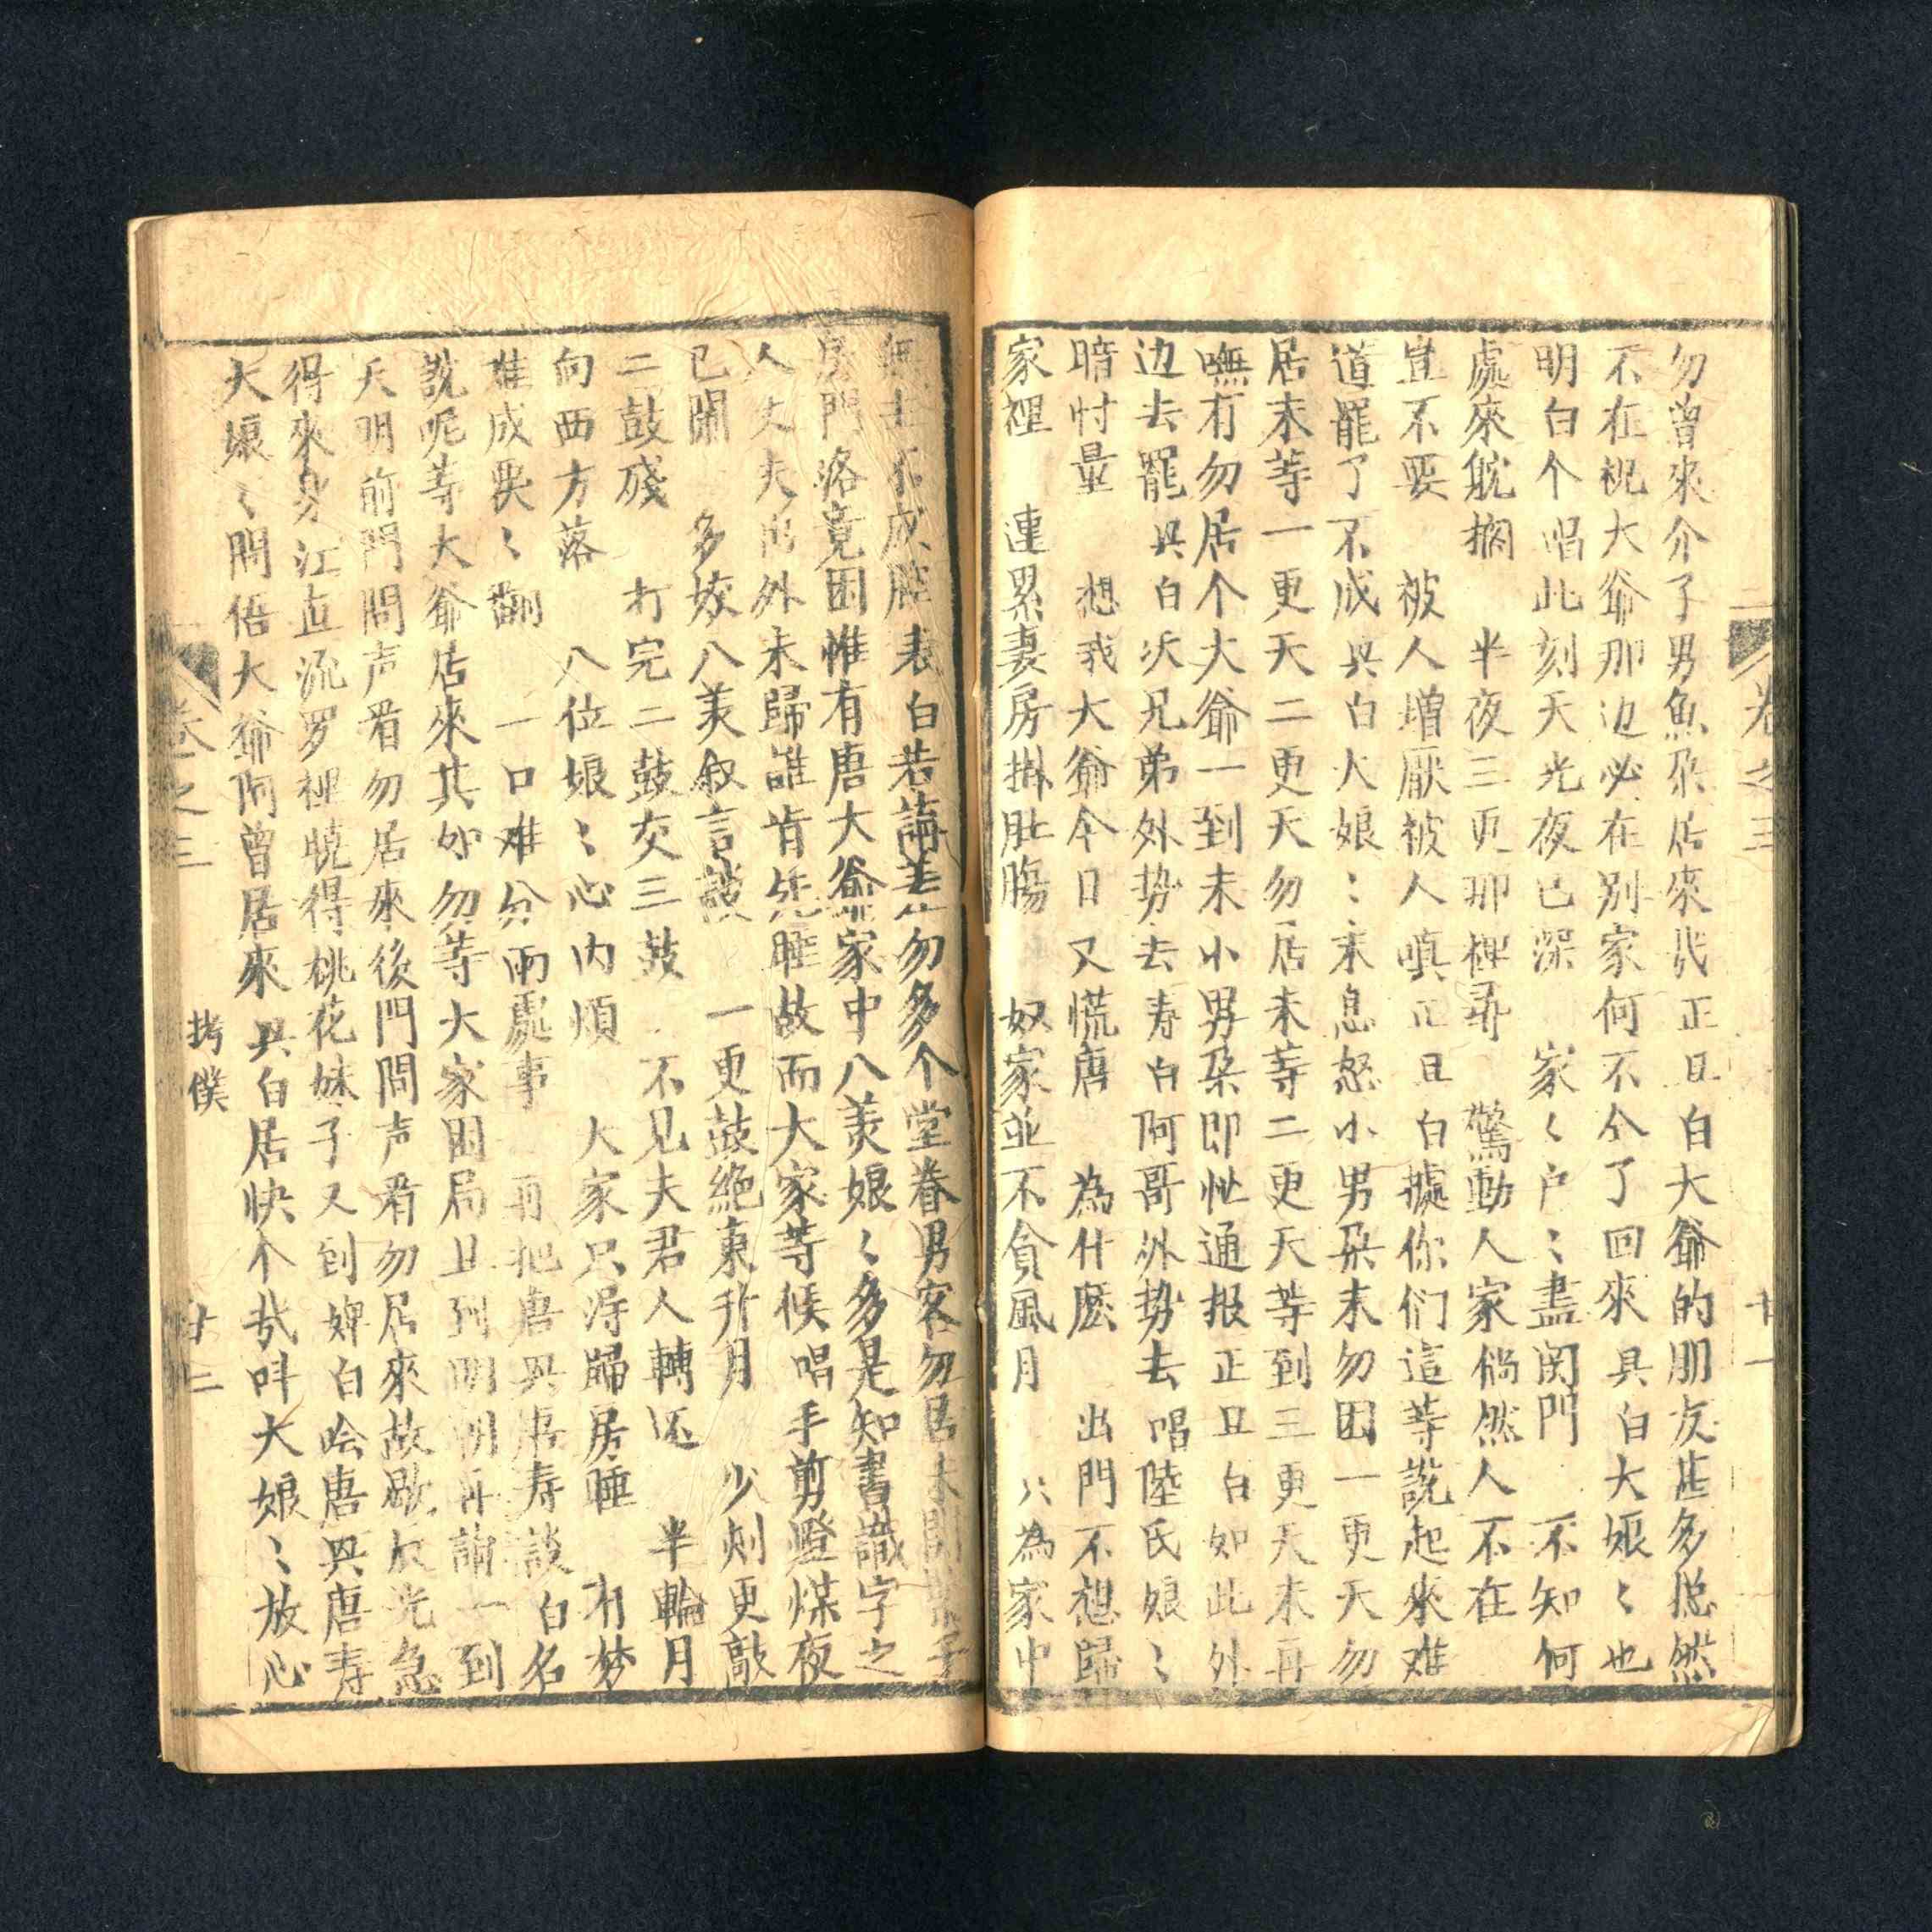 勿曾來介了男魚朶居來哉正旦白大爺的朋友甚多揔然
不在祝大爺那边必在別家何不仝了回來具白大娘〻也
明白个唱此刻天光夜已深 家〻户〻盡関門 不知何
處來躭擱 半夜三更那裡尋 驚動人家倘然人不在
豈不要 被人增厭被人嗔正旦白攄你们這等說起來难
道罷了不成具白大娘〻未息怒小男朶末勿困一更天勿
居末等一更天二更天勿居末等二更天等到三更天末再
嘸有勿居个大爺一到末小男朶即忙通报正旦白如此外
边去罷具白沃兄弟外势去寿白阿哥外势去唱陸氏娘〻
暗忖量 想我大爺今日又慌唐 為什麽 出門不想歸
家裡 連累妻房掛肚腸 奴家並不貪風月 只為家中
卷之三 廿一
無主不成 表白若論 勿多个堂眷男客勿居末
房門洛竟困惟有唐大爺家中八美娘〻多是知書識字之
人丈夫出外未歸誰肯 睡故而大家等候唱手剪燈煤夜
已闌 多姣八美叙言談 一更鼓絶東升月 少刻更敲
二鼓殘 打完二鼓交三鼓 不見夫君人轉还 半輪月
向西方落 八位娘〻心内煩 大家只得歸房睡 有梦
难成要〻翻 一口难分兩處事 再把唐興唐寿談白名
說呢等大爺居來其如勿等大家困局且到明朝再論一到
天明前門問声看勿居來後門問声看勿居來故歇辰光急
得來身江直流罗裡暁得桃花妹子又到婢白唅唐興唐寿
大娘〻問倍大爺阿曾居來具白居快个哉呌大娘〻放心
拷僕
卷之三 廿二